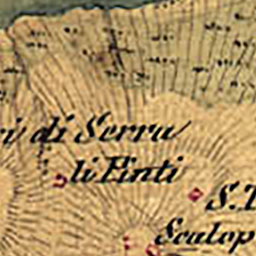 di Serra
li Finti
S.
Scalop